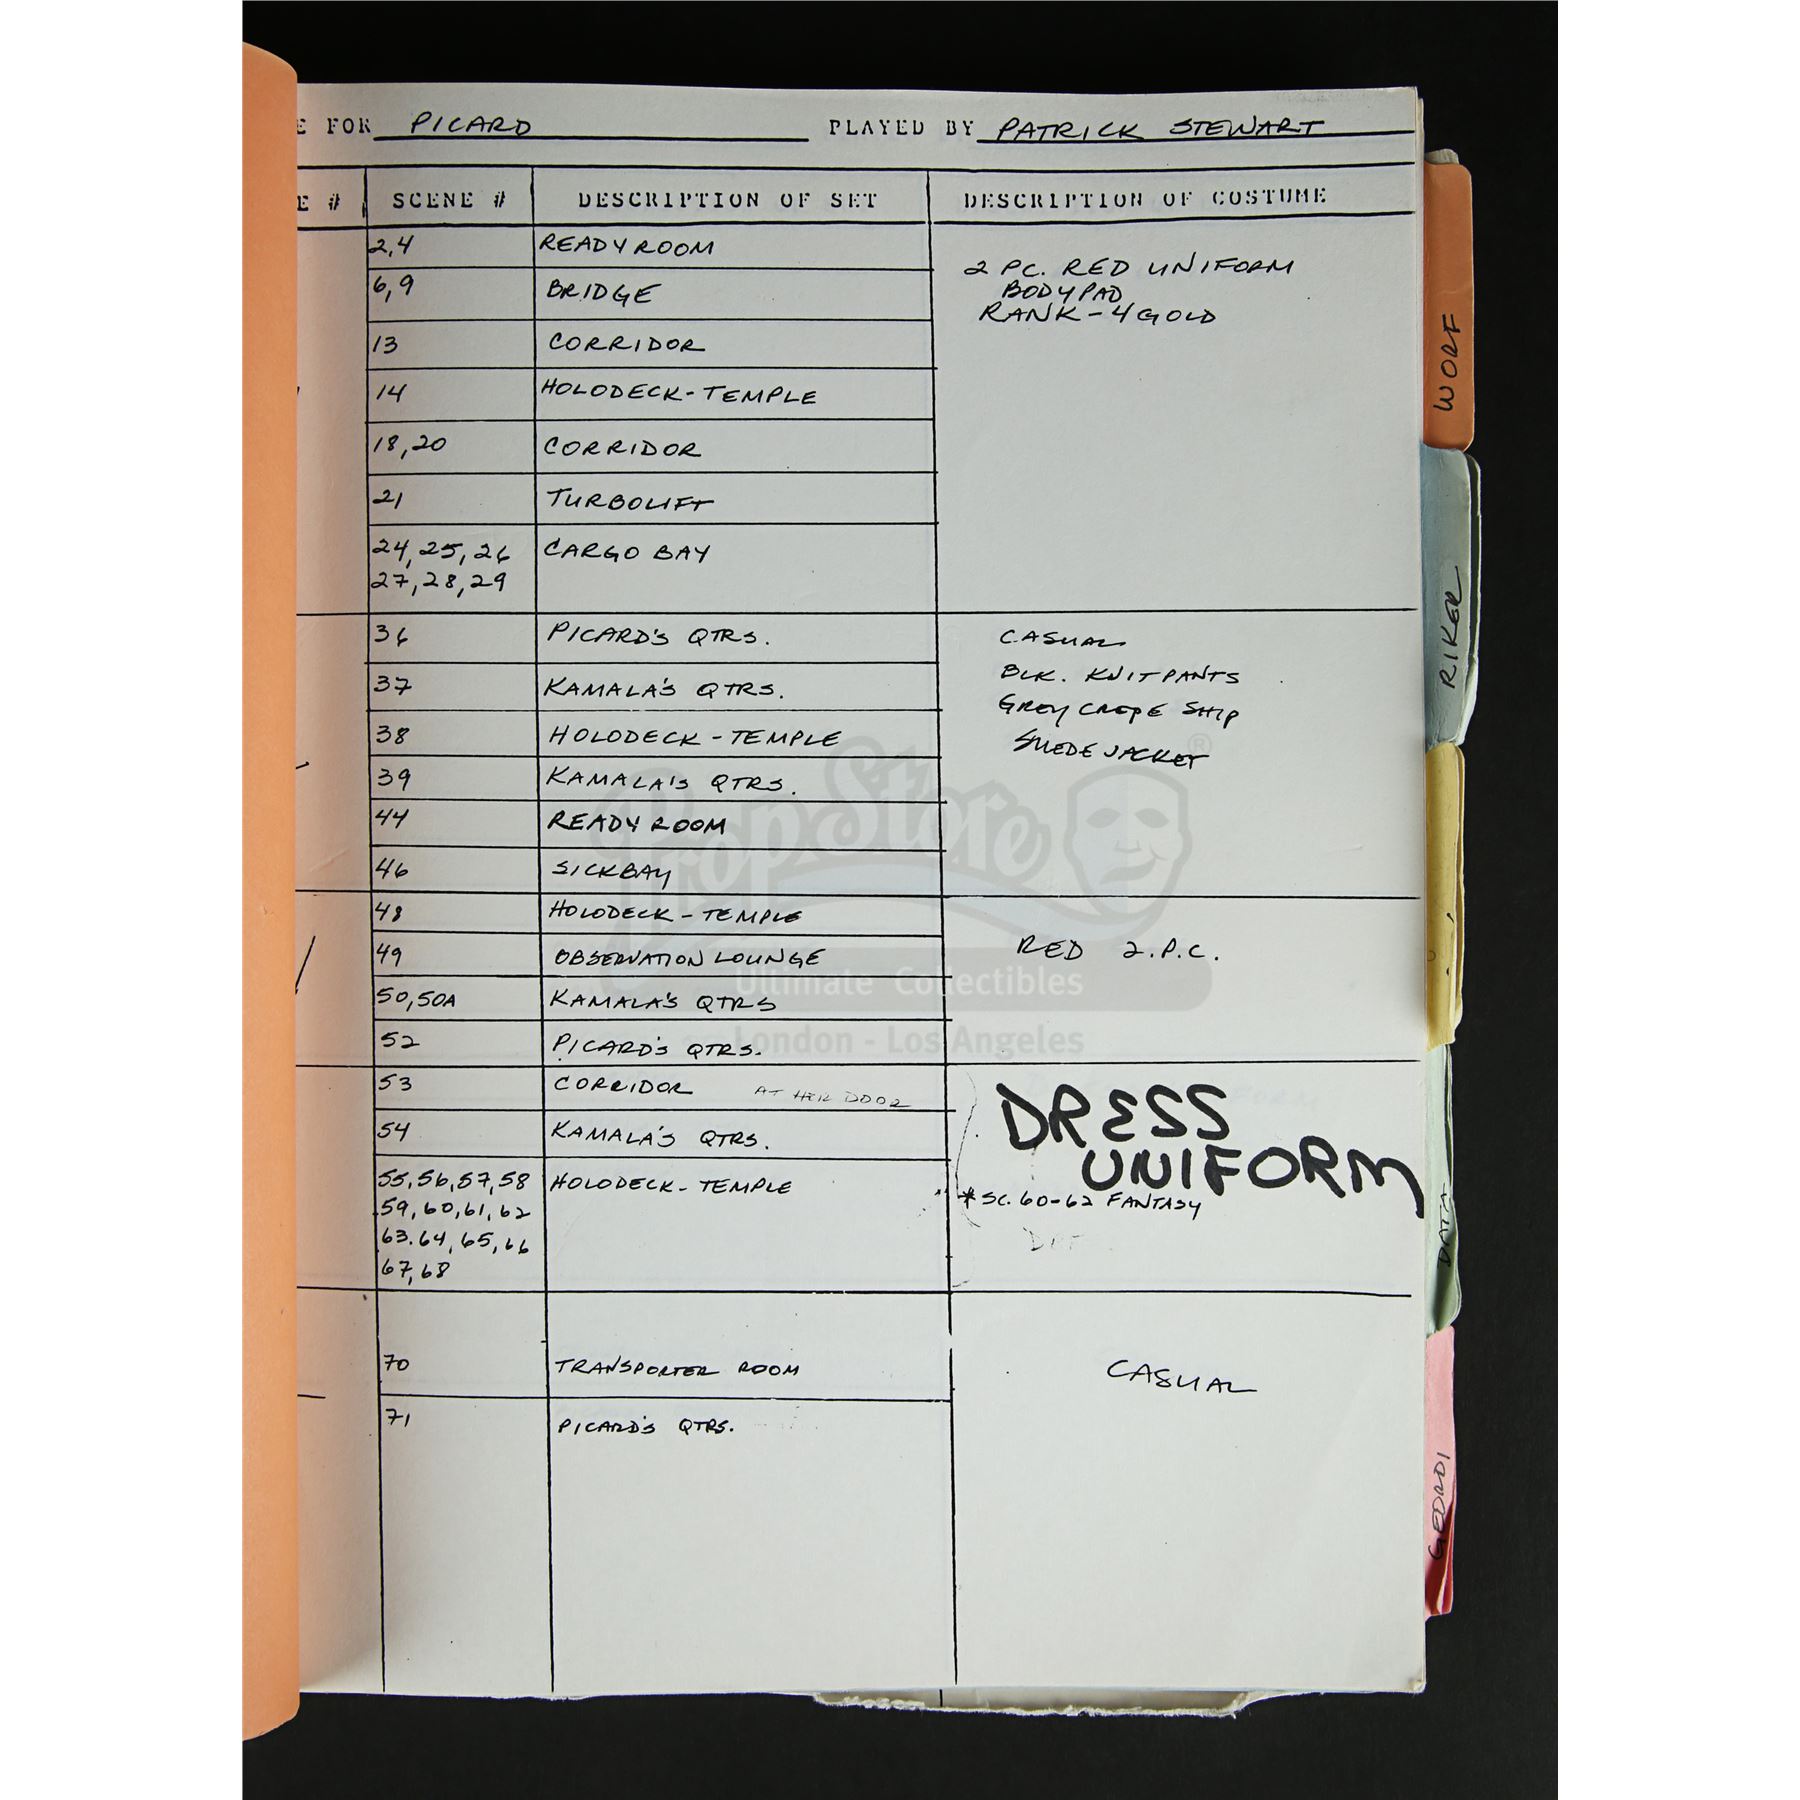 E FOR PICARD PLAYED BY PATRICK STEWART
E # SCENE # DESCRIPTION OF SET DESCRIPTION OF COSTUME
2,4 READY ROOM
2 PC. RED UNIFORM
BODYPAD
RANK-4 GOLD
6,9 BRIDGE
13 CORRIDOR
14 HOLODECK-TEMPLE
18,20 CORRIDOR
21 TURBOLIFT
24,25,26 CARGO BAY
27,28,29
36 PICARD'S QTRS.
CASUAL
BLK. KNIT PANTS
GREY CREPE SHIP
SUEDE JACKET
37 KAMALA'S QTRS.
38 HOLODECK-TEMPLE
39 KAMALA'S QTRS.
44 READY ROOM
46 SICKBAY
48 HOLODECK-TEMPLE
RED 2.P.C.
49 OBSERVATION LOUNGE
50,50A KAMALA'S QTRS
52 PICARD'S QTRS.
53 CORRIDOR AT HER DOOR
DRESS
UNIFORM
*SC. 60-62 FANTASY
54 KAMALA'S QTRS.
55,56,57,58 HOLODECK-TEMPLE
59,60,61,62
63.64,65,66
67,68
70 TRANSPORTER ROOM CASUAL
71 PICARD'S QTRS.
WORF
RIKER
DATA
GEORDI
PropStore ®
Ultimate Collectibles
London - Los Angeles